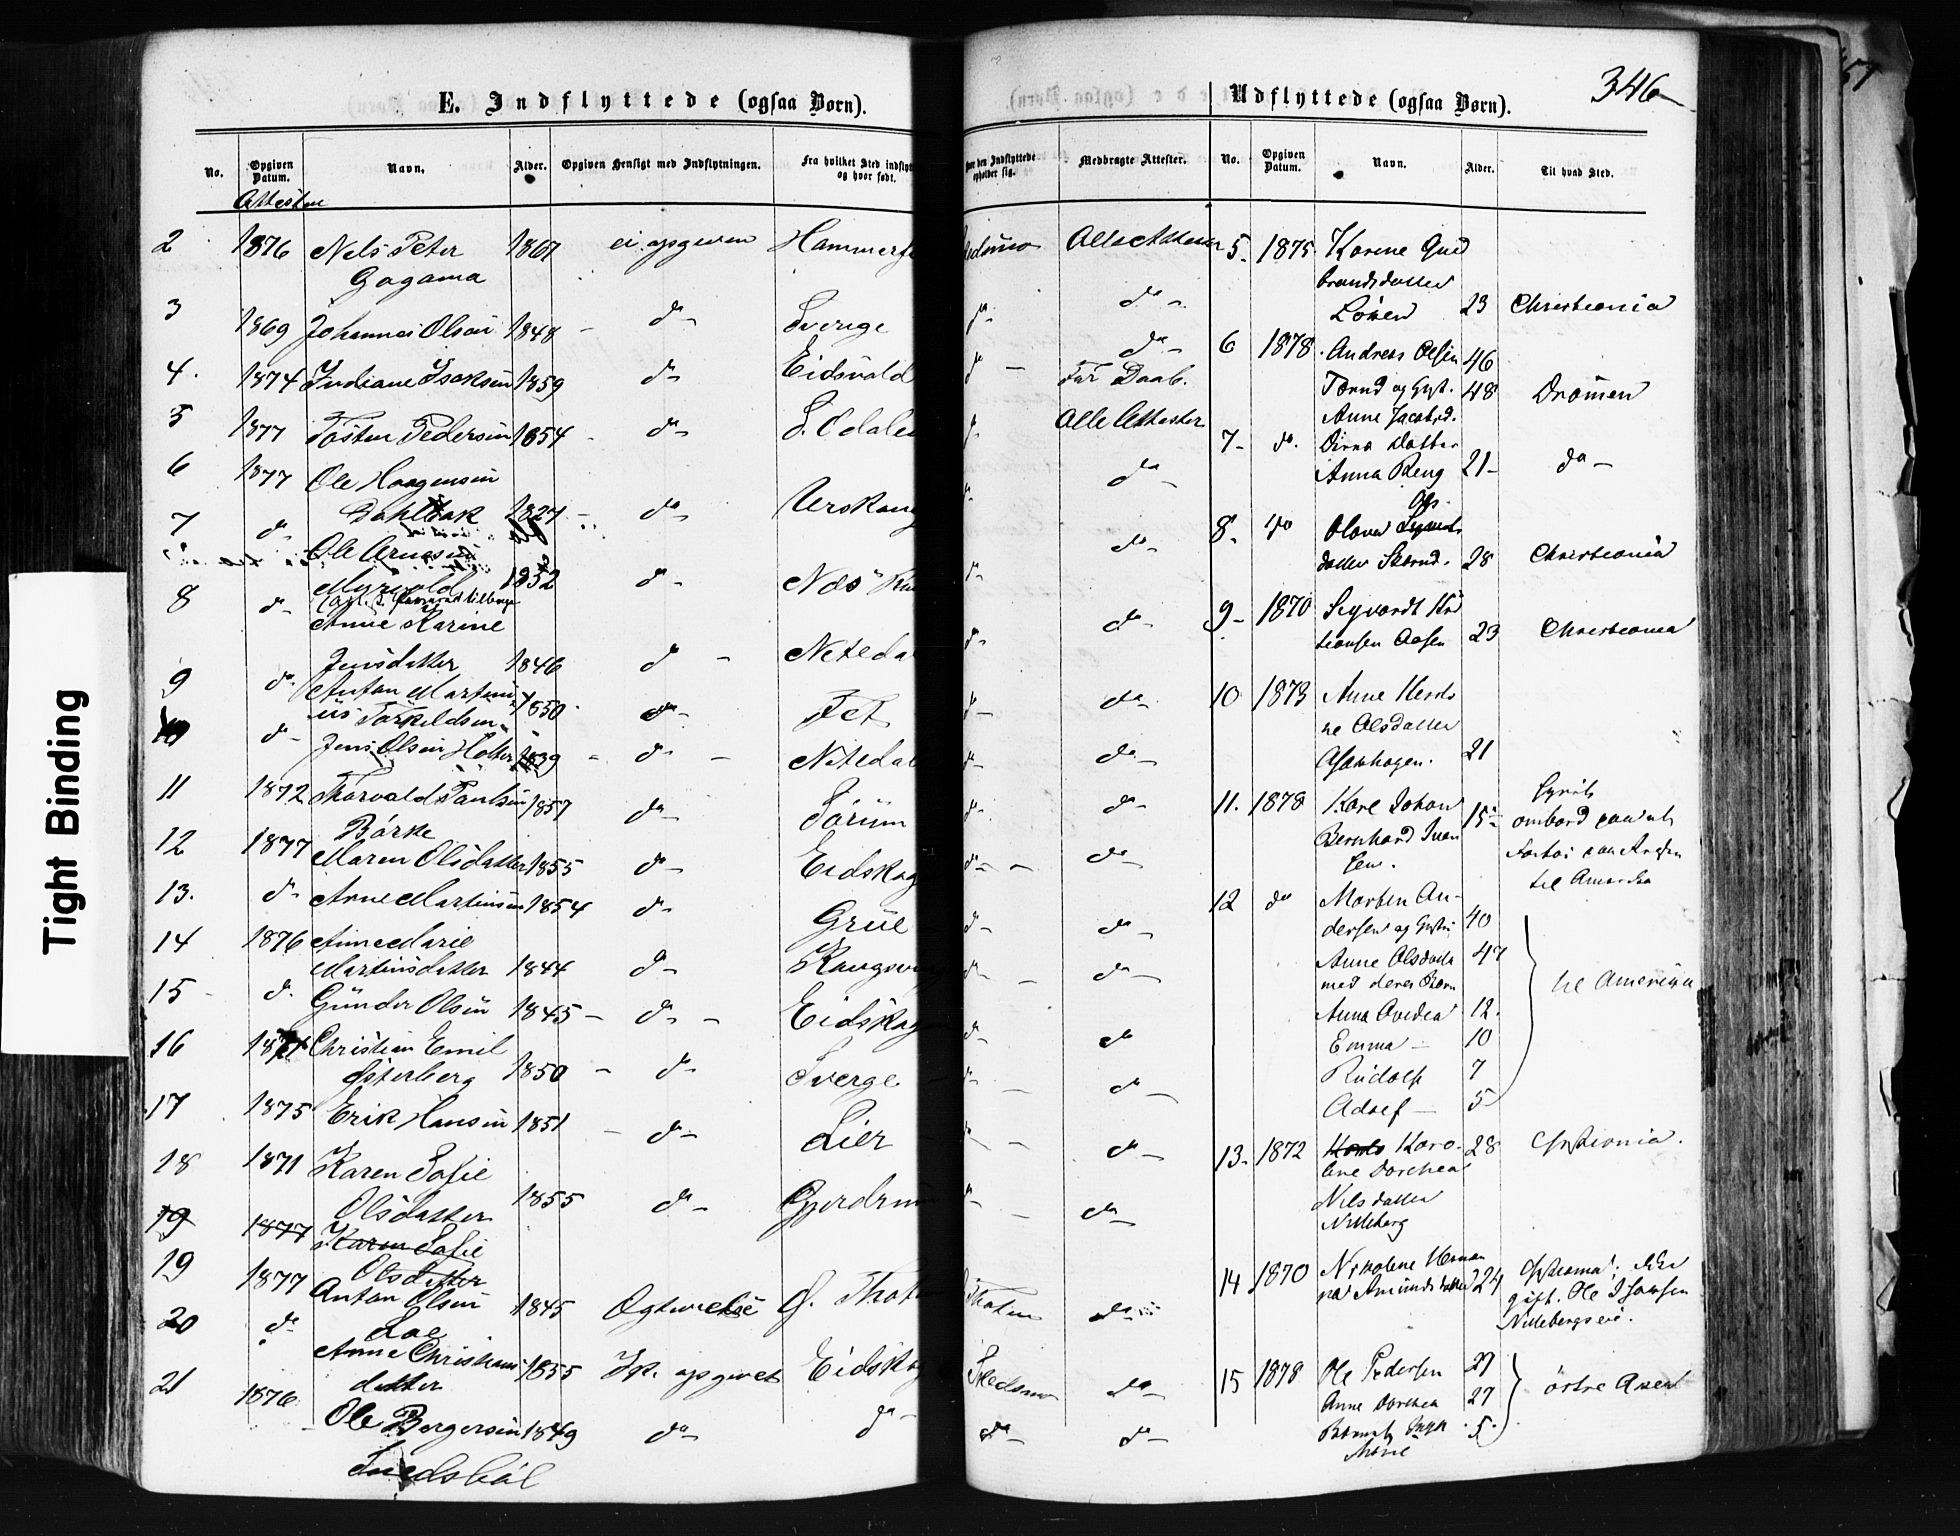 346
57
Tight Binding
E. Indflyttede (ogsaa Børn).
No. Opgiven Datum. Navn. Alder. Opgiven Hensigt med Indflytningen. Fra hvilket Sted indflyt og hvor født.
Attesten
2 1876 Nels Peter 1867 ei opgiven Hammerf
Gagama
3 1869 Johannes Olsen 1848 – do Sverige
4. 1874 Indiane Isaksen 1859 do Eidsvold
5 1877 Tosten Pedersen 1854 - do S. Odalen
6 1877 Ole Haagensen
Dahlbak 1827 – do Urskoug
7 do Ole Arnesen
Myrvold 1832 do Næs
8 do Anne Karine
Jensdatter 1846 do – Nitedal
9 do Anton Martini
us Torkildsen 1850 do Fet
10 do Jens Olsen Holter 1839 - do – Nitedal
11 1872 Thorvald Paulsen 1857 do Sörum
Börke
12 1877 Maren Olsdatter 1855 do Eidskog
13. do Arne Martinsen 1854 do Grue
14 1876 Anne Marie
Martinsdatter 1844 do Kongsving
15 - do Günder Olsen 1845 – do – Eidskog
16 Christian Emil
Österberg 1850 – do Sverge
17 1875 Erik Hansen 1851 – do Lier
18 1871 Karen Sofie
Olsdatter 1855 do Gjerdrum
19 1877 Karen Sofie
Olsdatter
19 1877 Anton Olsen 1845 Ægtevielse Ø. Thoten
Loe
20 do Anne Christians 1855 Ik. opgivet Eidskog
datter
21 1876 Ole Bergersen 1849 do do
hvor den Indflyttede opholder sig. Medbragte Attester.
Skedsmo Alle Attester
do
do
do – Før Daab.
do Alle Attester
do do
do do
do do
do do
do do
do do
do – do
do do
do do
do do
do – do
– do
do – do
Thoten do
Skedsmo do
do do
Udflyttede (ogsaa Børn).
No. Opgiven Datum. Navn. Alder. Til hvad Sted.
5. 1875 Karine Gud
brandsdatter
Löken 23 Christiania
6 1878. Andreas Olsen 46
og Gift. 48 Dramen
Anne Jacobsd.
7 – do. Datter
Anna 21 – do –
8. do Olava
datter 28 Christiania
9 – 1870 Sigvardt Kri
stiansen Aasen 23 Christiania
10 1873 Anne
ne Olsdatter
21
11. 1878 Karl Johan 15
Bernhard Iver
sen. ombord paa et
til Amerika
12 do Morten An-
dersen og 40
Anne Olsdatter 47
med deres Børn til Amerika
Anna Ovidea 12.
Emma – 10
Rudolf 7
Adolf – 5
13. 1872 Karo- 28 Chrstiania.
line Dorthea
Nilsdatter
Nilleberg
14 1870 Nikoline Herman
na Amundsdatter 24
gift. Ole Johansen
Nillebergseie.
15 1878 Ole Pedersen 27
Anne Dorthea 27 östre Aker
5